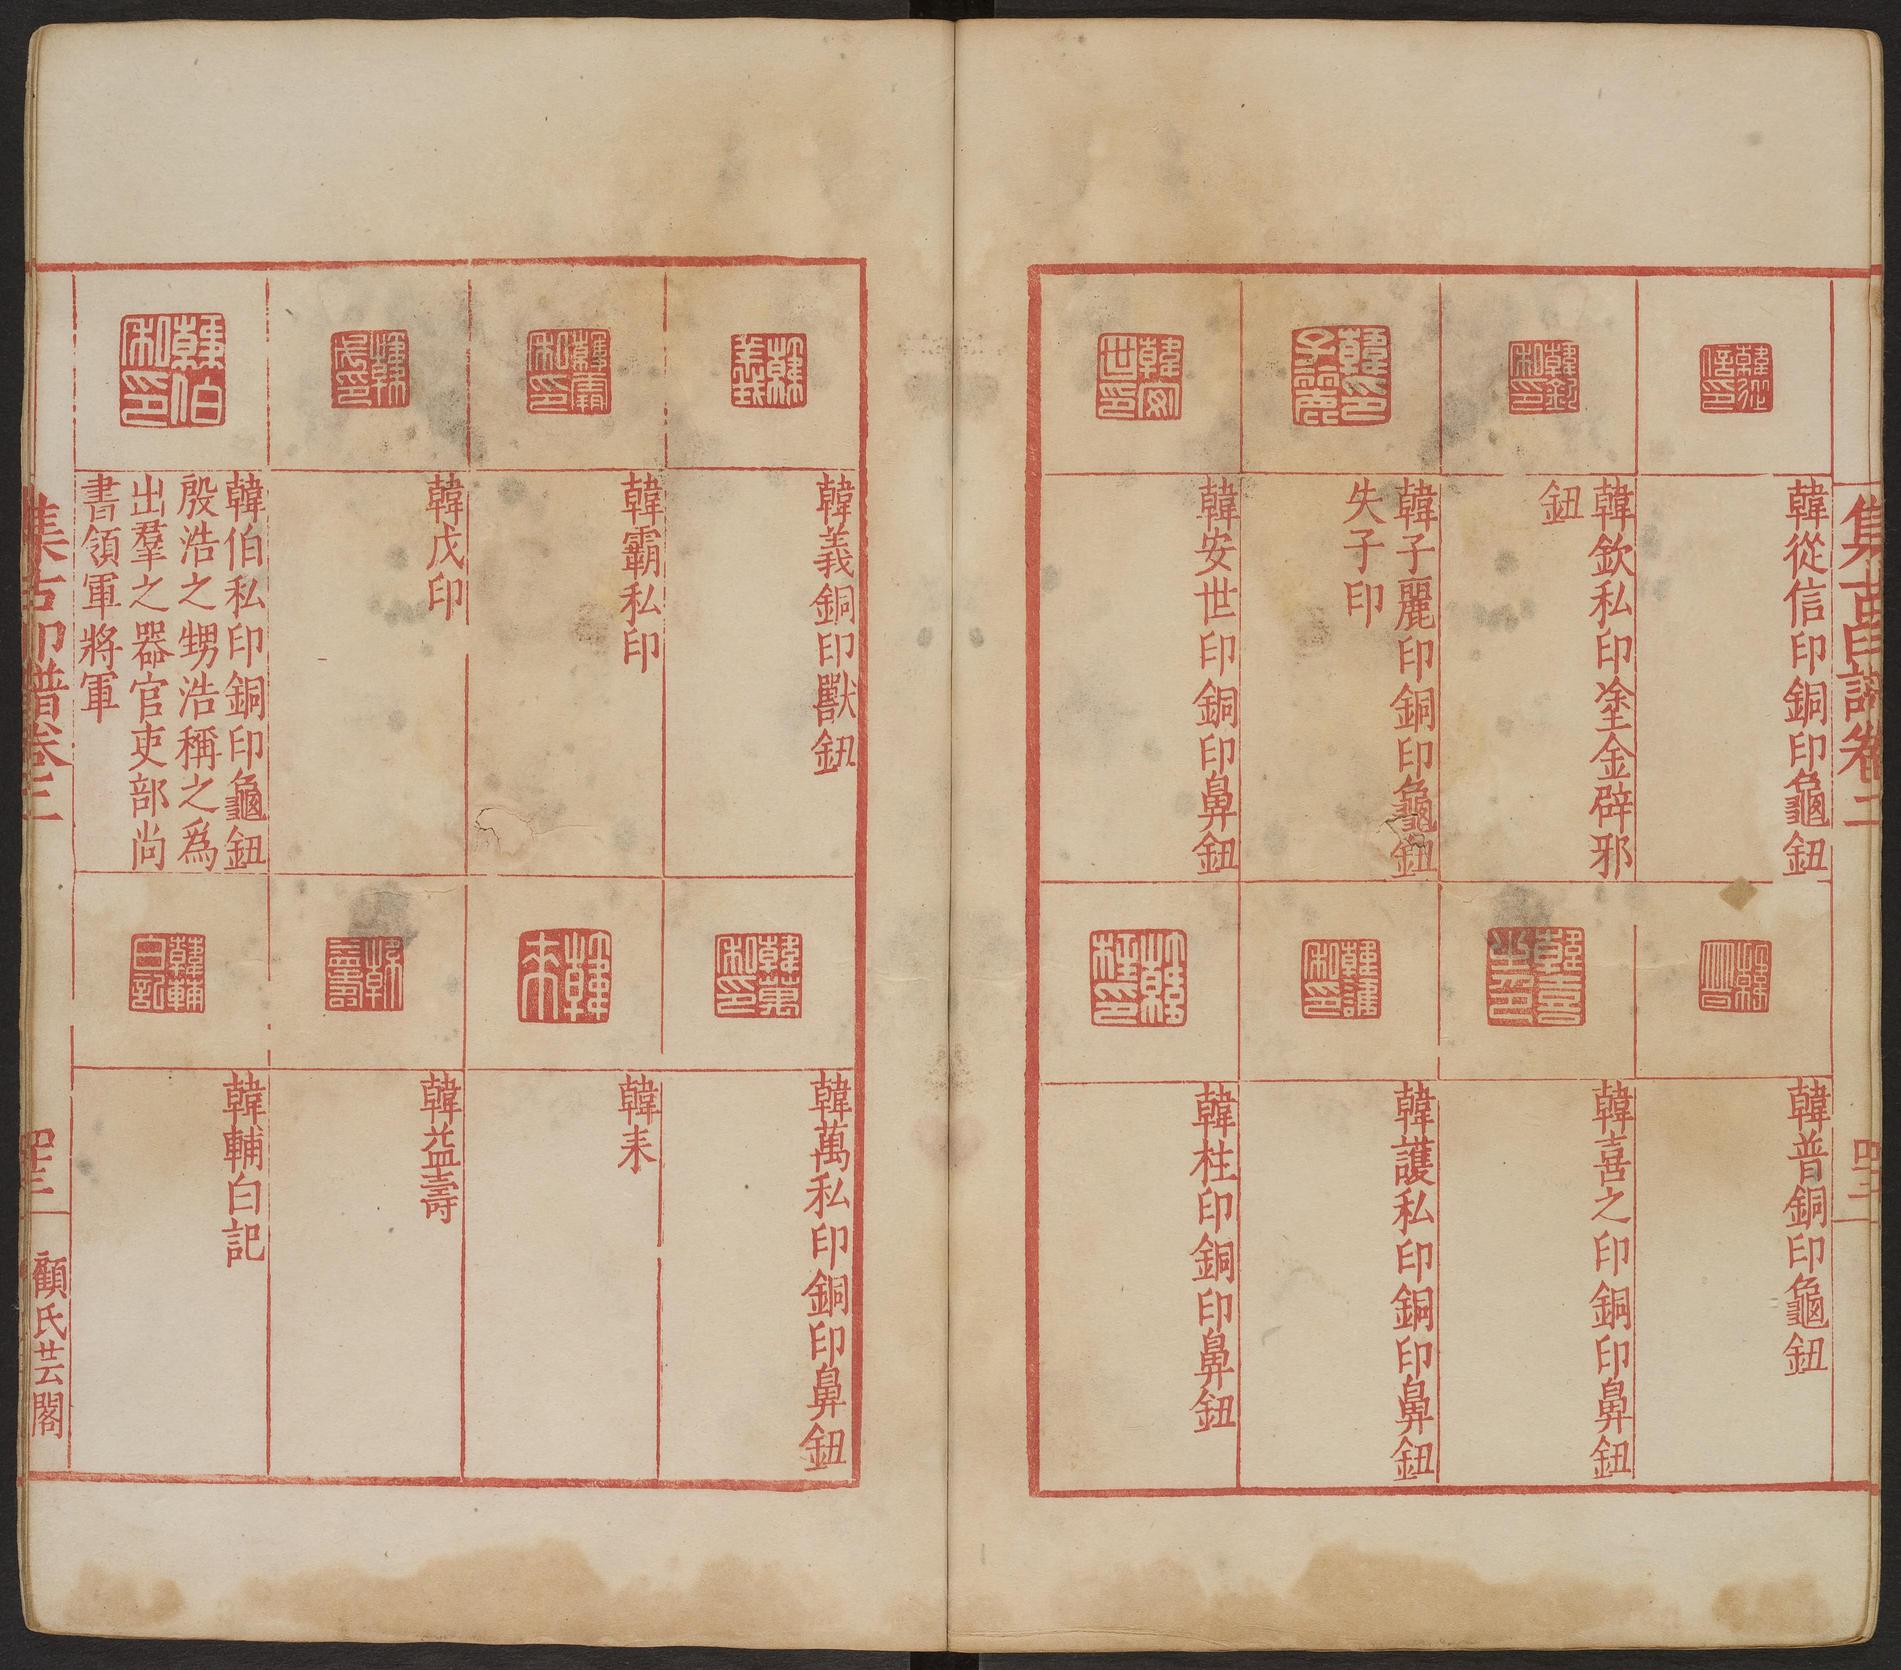 集古印譜卷二
韓從信印銅印龜鈕
韓欽私印塗金辟邪
鈕
韓子麗印銅印龜鈕
失子印
韓安世印銅印鼻鈕
韓普銅印龜鈕
韓喜之印銅印鼻鈕
韓護私印銅印鼻鈕
韓柱印銅印鼻鈕
韓義銅印獸鈕
韓霸私印
韓戊印
韓伯私印銅印龜鈕
殷浩之甥浩稱之爲
出羣之器官吏部尚
書領軍將軍
韓萬私印銅印鼻鈕
韓耒
韓益壽
韓輔白記
顧氏芸閣